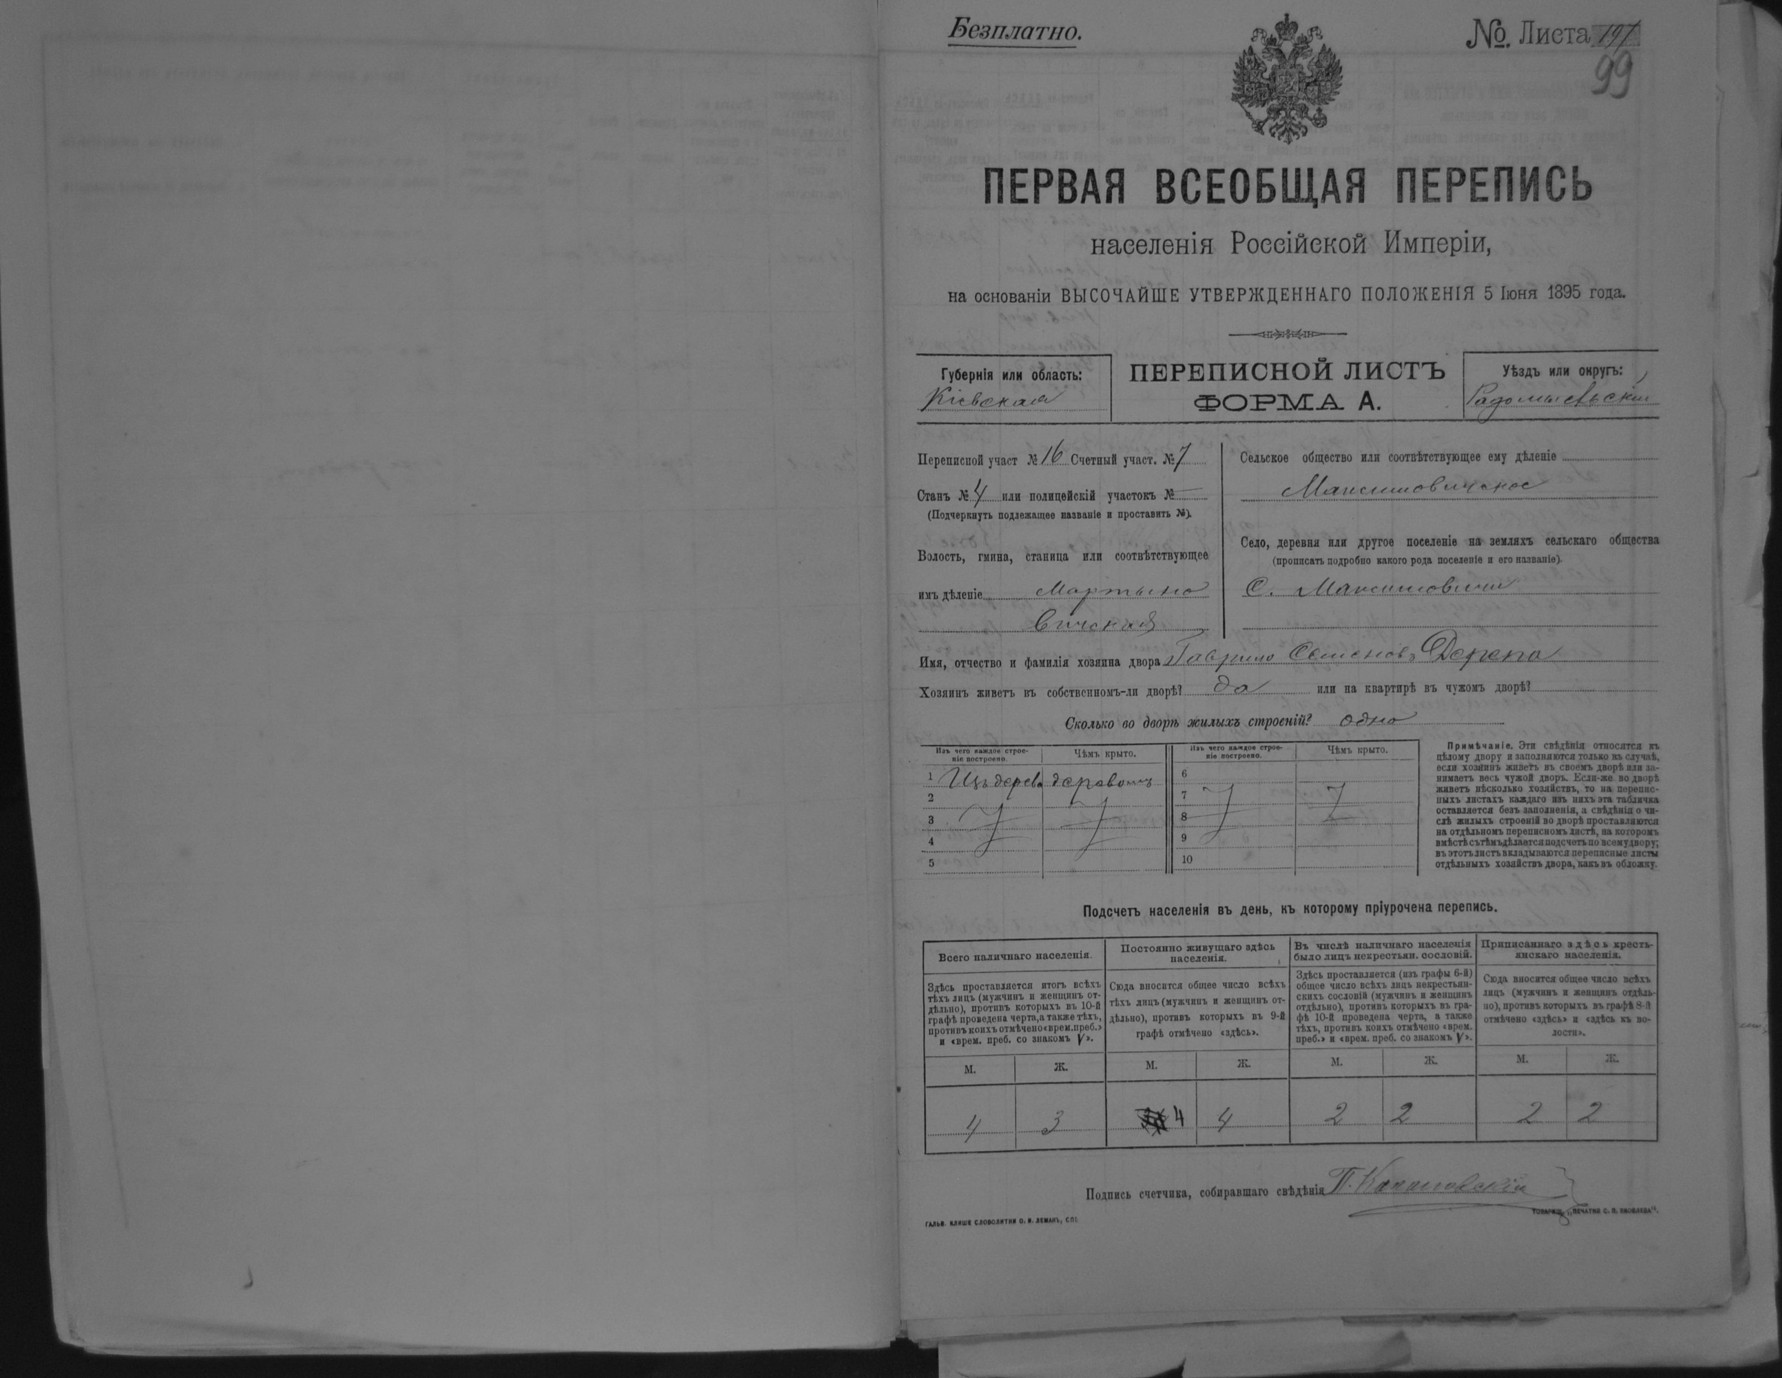 Безплатно.
№. Листа 197
99
ПЕРВАЯ ВСЕОБЩАЯ ПЕРЕПИСЬ
населенія Россійской Имперіи,
на основаніи ВЫСОЧАЙШЕ УТВЕРЖДЕННАГО ПОЛОЖЕНІЯ 5 Іюня 1895 года.
Губернія или область:
Кіевская
ПЕРЕПИСНОЙ ЛИСТЪ
ФОРМА А.
Уѣздъ или округъ:
Радомысльскій
Переписной участ № 16 Счетный участ. № 7
Станъ № 4 или полицейскій участокъ № —
(Подчеркнуть подлежащее названіе и проставить №).
Волость, гмина, станица или соотвѣтствующее
имъ дѣленіе Мартыно
вичская
Сельское общество или соотвѣтствующее ему дѣленіе
Максимовичское
Село, деревня или другое поселеніе на земляхъ сельскаго общества
(прописать подробно какого рода поселеніе и его названіе).
С. Максимовичи
Имя, отчество и фамилія хозяина двора Гаврило Семеновъ Дерепа
Хозяинъ живетъ въ собственномъ-ли дворѣ? да или на квартирѣ въ чужомъ дворѣ?
Сколько во дворѣ жилыхъ строеній? одно
Изъ чего каждое строе-
ніе построено.
Чѣмъ крыто.
Изъ чего каждое строе-
ніе построено.
Чѣмъ крыто.
1 Изъ дерева деревомъ
2
3
4
5
6
7
8
9
10
Примѣчаніе. Эти свѣдѣнія относятся къ
цѣлому двору и заполняются только въ случаѣ,
если хозяинъ живетъ въ своемъ дворѣ или за-
нимаетъ весь чужой дворъ. Если-же во дворѣ
живетъ нѣсколько хозяйствъ, то на перепис-
ныхъ листахъ каждаго изъ нихъ эта табличка
оставляется безъ заполненія, а свѣдѣнія о чи-
слѣ жилыхъ строеній во дворѣ проставляются
на отдѣльномъ переписномъ листѣ, на которомъ
вмѣстѣ съ тѣмъ дѣлается подсчетъ по всему двору;
въ этотъ листъ вкладываются переписные листы
отдѣльныхъ хозяйствъ двора, какъ въ обложку.
Подсчетъ населенія въ день, къ которому пріурочена перепись.
Всего наличнаго населенія.
Здѣсь проставляется итогъ всѣхъ
тѣхъ лицъ (мужчинъ и женщинъ от-
дѣльно), противъ которыхъ въ 10-й
графѣ проведена черта, а также тѣхъ,
противъ коихъ отмѣчено «врем. преб.»
и «врем. преб. со знакомъ V».
М. Ж.
4 3
Постоянно живущаго здѣсь
населенія.
Сюда вносится общее число всѣхъ
тѣхъ лицъ (мужчинъ и женщинъ от-
дѣльно), противъ которыхъ въ 9-й
графѣ отмѣчено «здѣсь».
М. Ж.
4 4
Въ числѣ наличнаго населенія
было лицъ некрестьян. сословій.
Здѣсь проставляется (изъ графы 6-й)
общее число всѣхъ лицъ некрестьян-
скихъ сословій (мужчинъ и женщинъ
отдѣльно), противъ которыхъ въ гра-
фѣ 10-й проведена черта, а также
тѣхъ, противъ коихъ отмѣчено «врем.
преб.» и «врем. преб. со знакомъ V».
М. Ж.
2 2
Приписаннаго здѣсь кресть-
янскаго населенія.
Сюда вносится общее число всѣхъ
лицъ (мужчинъ и женщинъ отдѣль-
но), противъ которыхъ въ графѣ 8-й
отмѣчено «здѣсь» и «здѣсь въ во-
лости».
М. Ж.
2 2
Подпись счетчика, собиравшаго свѣдѣнія П.
ГАЛЬВ. КЛИШЕ СЛОВОЛИТНИ О. И. ЛЕМАНЪ, СПБ.
ТОВАРИЩ. „ПЕЧАТНЯ С. П. ЯКОВЛЕВА“.